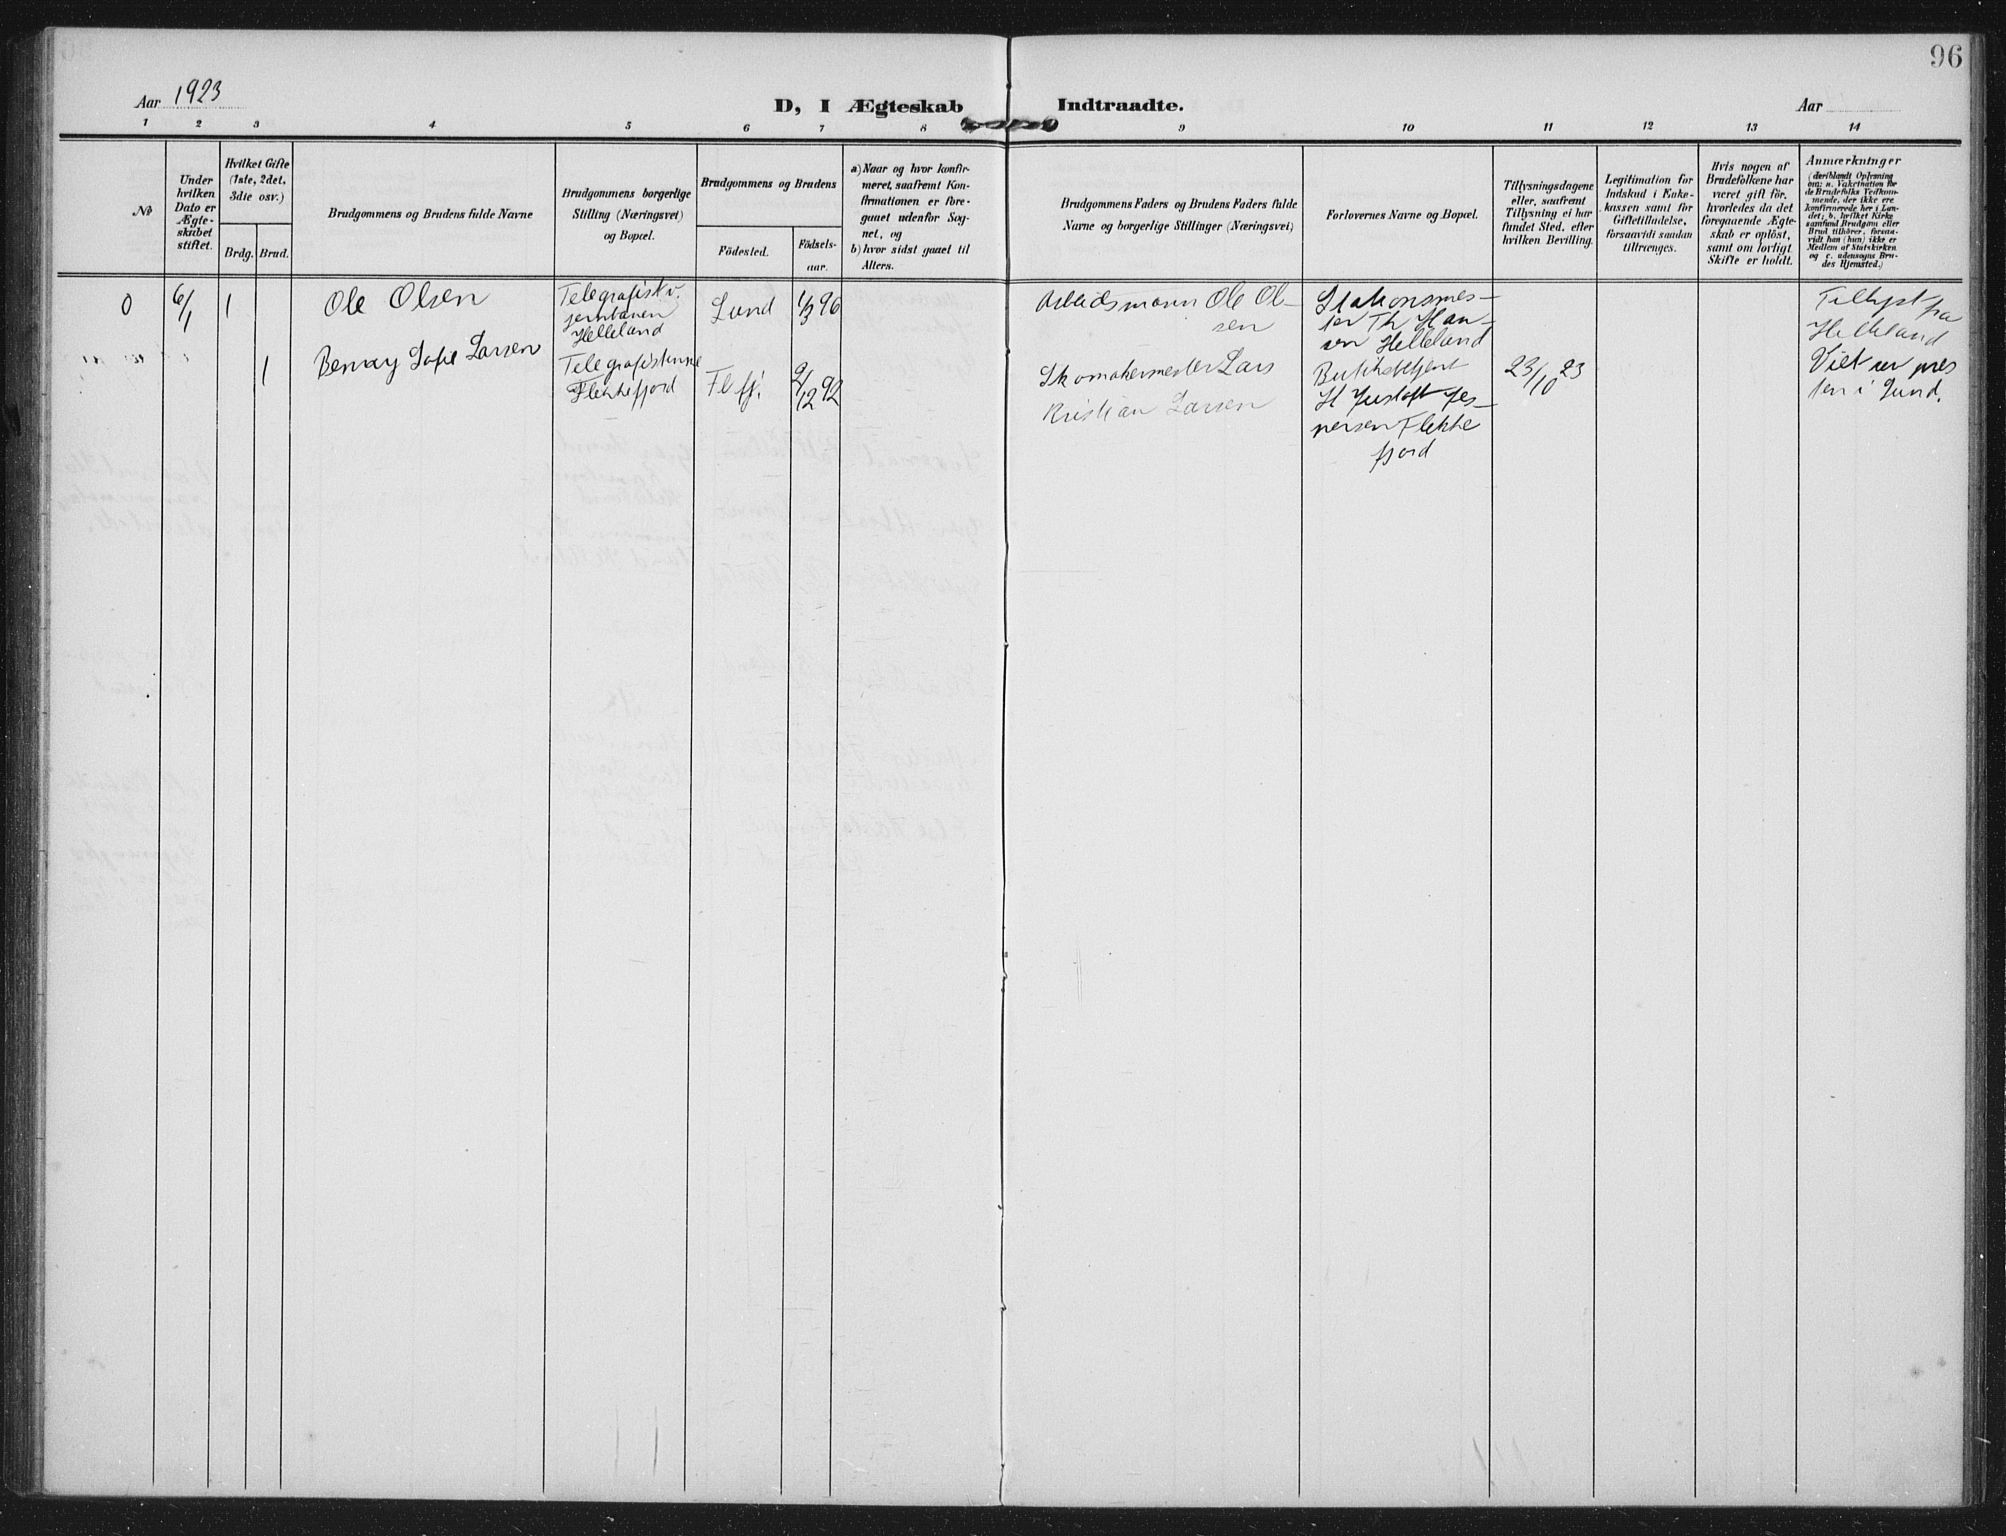 96
Aar 1923
D, I Ægteskab Indtraadte.
Aar
1 2 3 4 5 6 7 8 9 10 11 12 13 14
No
Under
hvilken
Dato er
Ægte-
skabet
stiftet.
Hvilket Gifte
(1ste, 2det,
3die osv.)
Brdg. Brud.
Brudgommens og Brudens fulde Navne
Brudgommens borgerlige
Stilling (Næringsvei)
og Bopæl.
Brudgommens og Brudens
Födested.
Födsels-
aar.
a) Naar og hvor konfir-
meret, saafremt Kon-
firmationen er fore-
gaaet udenfor Sog-
net, og
b) hvor sidst gaaet til
Alters.
Brudgommens Faders og Brudens Faders fulde
Navne og borgerlige Stillinger (Næringsvei)
Forlovernes Navne og Bopæl.
Tillysningsdagene
eller, saafremt
Tillysning ei har
fundet Sted, efter
hvilken Bevilling.
Legitimation for
Indskud i Enke-
kassen samt för
Giftetilladelse,
forsaavidt saadan
tiltrænges.
Hvis nogen af
Brudefolkene har
været gift för,
hvorledes da det
foregaaende Ægte-
skab er oplöst,
samt om lovligt
Skifte er holdt.
Anmærkninger
(deriblandt Oplysning
om: a. Vakcination for
de Brudefolks Vedkom-
mende, der ikke ere
konfirmerede her i Lan-
det; b. hvilket Kirke
samfund Brudgom eller
Brud tilhörer, forsaa-
vidt han (hun) ikke er
Medlem af Statskirken
og c. udensogns Bru-
des Hjemsted.)
0 6/1 1
Ole Olsen
Telegrafist v.
jernbanen
Helleland
Lund 1/3 96
Arbeidsmann Ole Ol-
sen
Stationsmes-
ter Th Han-
sen Helleland
Tillyst fra
Helleland
1
Benny Sofie Larsen
Telegrafistinne
Flekkefjord
Flefj. 9/12 92
Skomakermester Lars
Kristian Larsen
Butikbetjent
H Gustaft Jes-
persen Flekke
fjord
23/10 23
Viet av pres
ten i Lund.